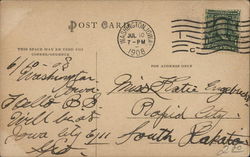 POST CARD
WASHINGTON, IOWA
JUL 10
7-PM
1908
THIS SPACE MAY BE USED FOR
CORRESPONDENCE
FOR ADDRESS ONLY
Washington
Iowa
Hello
Will be at
Iowa City 6/11
Miss Katie
Rapid City
South Dakota